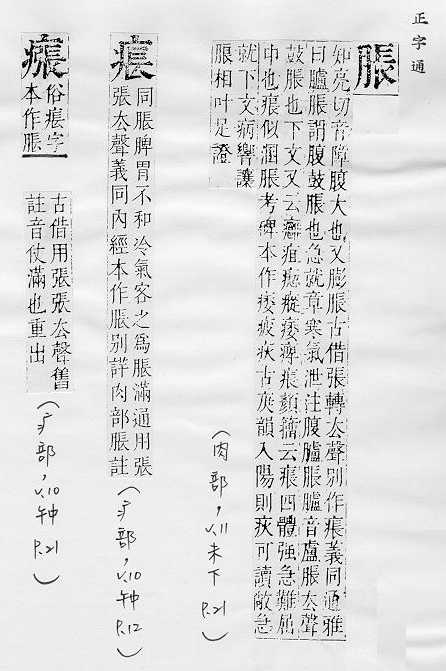 正字通
脹
知亮切音障腹大也又膨脹古借張轉去聲別作痮義同通雅
曰臚脹謂腹鼓脹也急就章寒氣泄注腹臚脹臚音盧脹去聲
鼓脹也下文又云癰疽瘛瘲痿痹痮顏籀云痮四體強急難屈
中也痮似涸脹考碑本作痿疲疢古庚韻入陽則疢可讀敞急
就下文病響讓
脹相叶足證
(肉部, v.11
未下
P.21)
痮
同脹脾胃不和冷氣客之為脹滿通用張
張去聲義同內經本作脹別詳肉部脹註
(疒部, v.10
午中
P.12)
瘬
俗痮字
本作脹
古借用張張去聲舊
註音仗滿也重出
(疒部, v.10
午中
P.21)